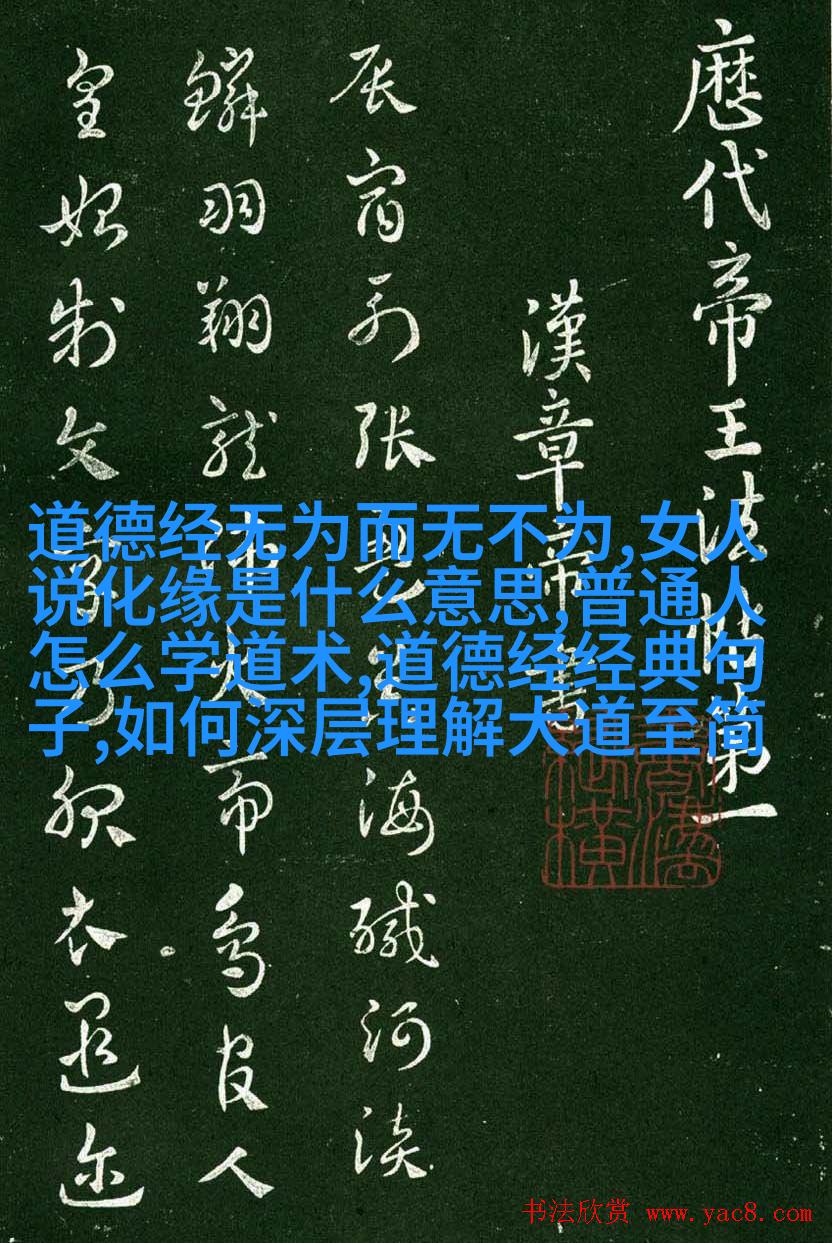 歷代帝王法帖第一
漢章帝書
辰宿列張海鹹河淡
鱗羽翔龍師火帝鳥官人
皇始制文字乃服衣遐迩
道德经无为而无不为,女人
说化缘是什么意思,普通人
怎么学道术,道德经经典句
子,如何深层理解大道至简
书法欣赏 www.yac8.com